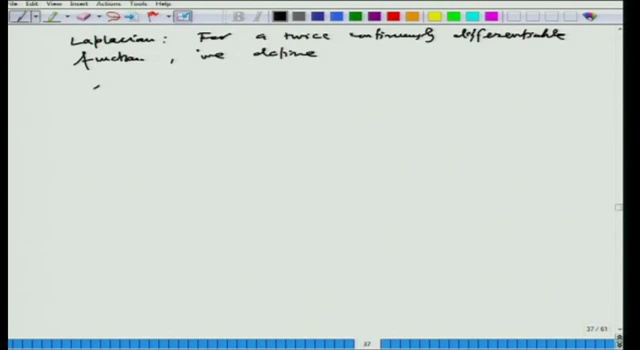 File Edit View Insert Actions Tools Help
Laplacian: For a twice continuously differentiable
function, we define
37 / 61
37